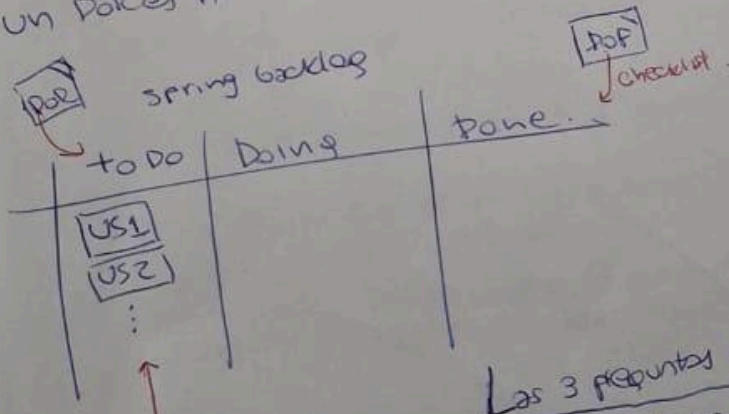 un
DOR
spring backlog
DOF
checklist
to DO Doing Done.
US1
US2
⋮
Las 3 preguntas